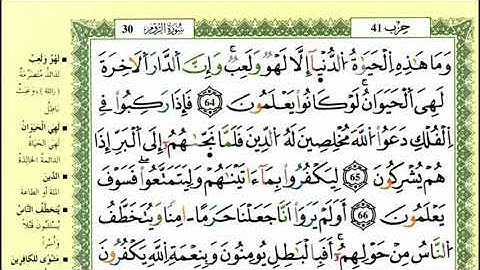 حزب 41
سُورَةُ الرُّومِ 30
وَمَا هَٰذِهِ الْحَيَوٰةُ الدُّنْيَا إِلَّا لَهْوٌ وَلَعِبٌ وَإِنَّ الدَّارَ الْآخِرَةَ
لَهِيَ الْحَيَوَانُ لَوْ كَانُوا يَعْلَمُونَ 64 فَإِذَا رَكِبُوا فِي
الْفُلْكِ دَعَوُا اللَّهَ مُخْلِصِينَ لَهُ الدِّينَ فَلَمَّا نَجَّىٰهُمْ إِلَى الْبَرِّ إِذَا
هُمْ يُشْرِكُونَ 65 لِيَكْفُرُوا بِمَا ءَاتَيْنَٰهُمْ وَلِيَتَمَتَّعُوا فَسَوْفَ
يَعْلَمُونَ 66 أَوَلَمْ يَرَوْا أَنَّا جَعَلْنَا حَرَمًا ءَامِنًا وَيُتَخَطَّفُ
النَّاسُ مِنْ حَوْلِهِمْ أَفَبِالْبَٰطِلِ يُؤْمِنُونَ وَبِنِعْمَةِ اللَّهِ يَكْفُرُونَ
لَهْوٌ وَلَعِبٌ
لَهِيَ الْحَيَوَانُ
لَهِيَ الْحَيَاةُ
الدَّائِمَةُ الْخَالِدَةُ
الدِّينَ
الملة أو الطاعة
يُتَخَطَّفُ النَّاسُ
مَثْوًى لِلْكَافِرِينَ